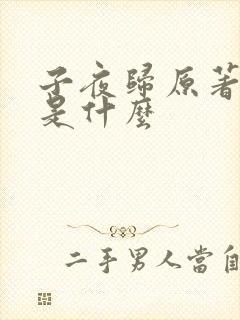 子夜歸原著
是什麼
二手男人當自